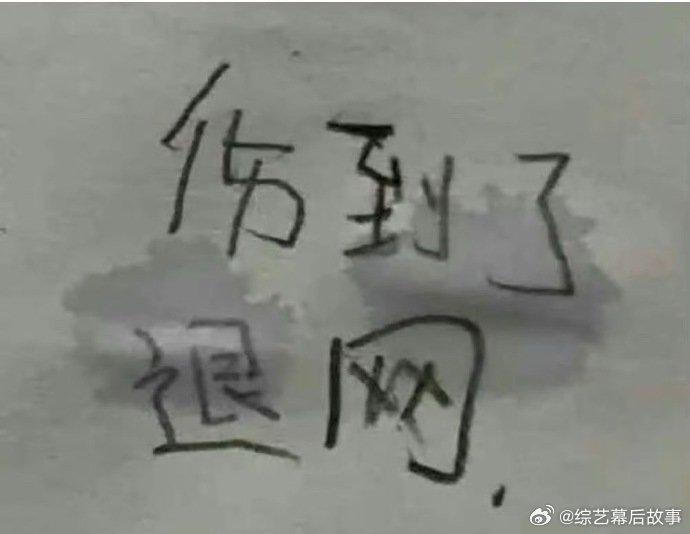 伤到了
退网.
@综艺幕后故事